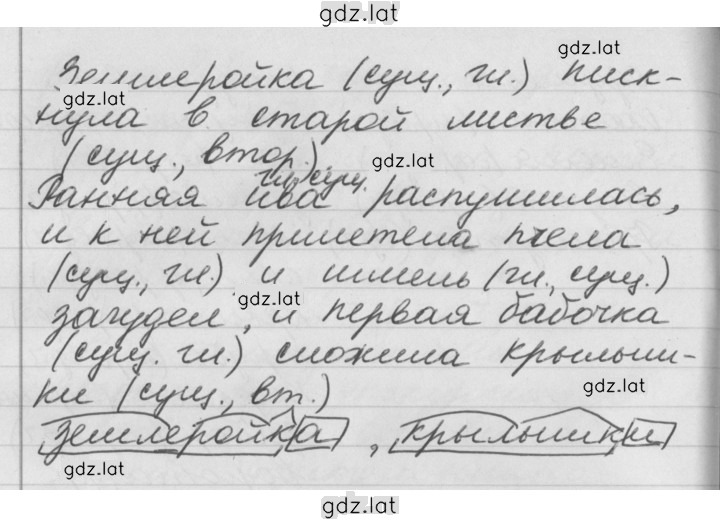 gdz.lat
gdz.lat
Землеройка (сущ., гл.) писк-
gdz.lat
нула в старой листве
(сущ., втор.). gdz.lat
гл. сущ.
Ранняя ива распушилась,
и к ней прилетела пчела
(сущ., гл.) и шмель (гл., сущ.)
gdz.lat
загудел, и первая бабочка
(сущ. гл.) сложила крылыш-
ки (сущ., вт.) gdz.lat
землеройка, крылышки
gdz.lat
gdz.lat